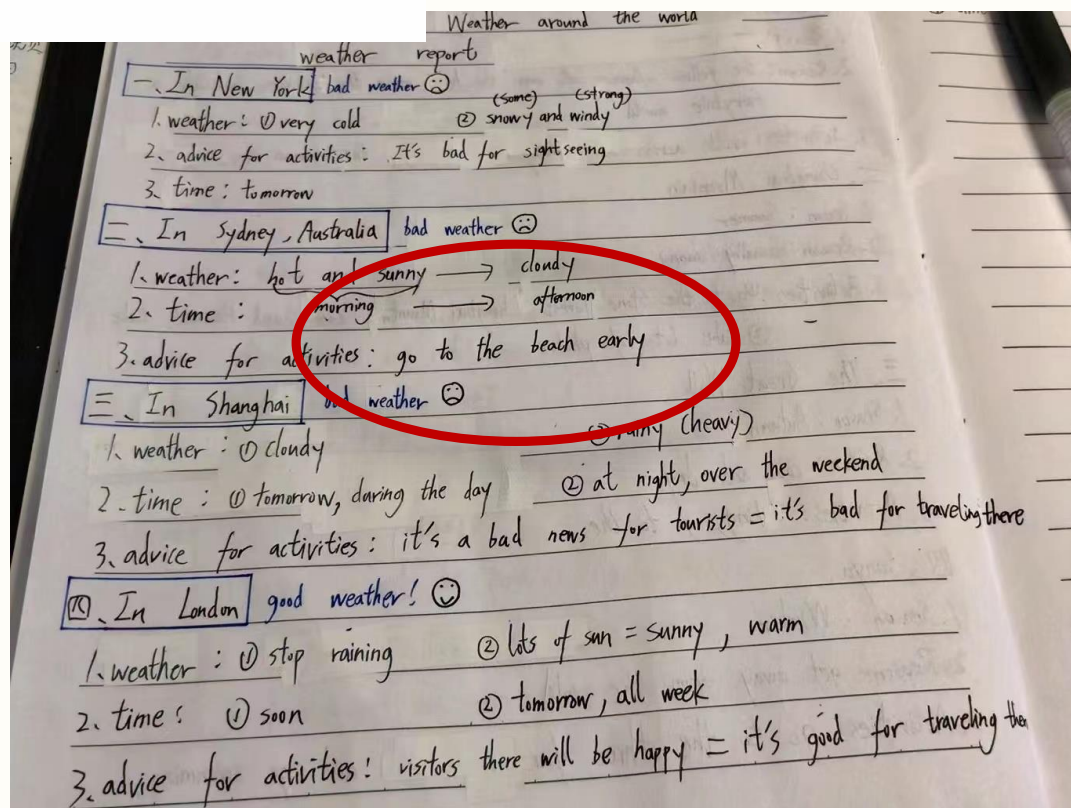 Weather around the world
weather report
一、In New York bad weather
(some) (strong)
1. weather: ① very cold ② snowy and windy
2. advice for activities: It's bad for sightseeing
3. time: tomorrow
二、In Sydney, Australia bad weather
1. weather: hot and sunny → cloudy
2. time: morning → afternoon
3. advice for activities: go to the beach early
三、In Shanghai bad weather
1. weather: ① cloudy ② rainy (heavy)
2. time: ① tomorrow, during the day ② at night, over the weekend
3. advice for activities: it's a bad news for tourists = it's bad for traveling there
四、In London good weather!
1. weather: ① stop raining ② lots of sun = sunny, warm
2. time: ① soon ② tomorrow, all week
3. advice for activities: visitors there will be happy = it's good for traveling